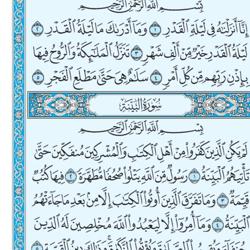 بِسْمِ اللَّهِ الرَّحْمَٰنِ الرَّحِيمِ
إِنَّا أَنزَلْنَاهُ فِي لَيْلَةِ الْقَدْرِ ١ وَمَا أَدْرَاكَ مَا لَيْلَةُ الْقَدْرِ ٢
لَيْلَةُ الْقَدْرِ خَيْرٌ مِّنْ أَلْفِ شَهْرٍ ٣ تَنَزَّلُ الْمَلَائِكَةُ وَالرُّوحُ فِيهَا
بِإِذْنِ رَبِّهِم مِّن كُلِّ أَمْرٍ ٤ سَلَامٌ هِيَ حَتَّىٰ مَطْلَعِ الْفَجْرِ ٥
سُورَةُ الْبَيِّنَةِ
بِسْمِ اللَّهِ الرَّحْمَٰنِ الرَّحِيمِ
لَمْ يَكُنِ الَّذِينَ كَفَرُوا مِنْ أَهْلِ الْكِتَابِ وَالْمُشْرِكِينَ مُنفَكِّينَ حَتَّىٰ
تَأْتِيَهُمُ الْبَيِّنَةُ ١ رَسُولٌ مِّنَ اللَّهِ يَتْلُو صُحُفًا مُّطَهَّرَةً ٢ فِيهَا كُتُبٌ
قَيِّمَةٌ ٣ وَمَا تَفَرَّقَ الَّذِينَ أُوتُوا الْكِتَابَ إِلَّا مِن بَعْدِ مَا جَاءَتْهُمُ
الْبَيِّنَةُ ٤ وَمَا أُمِرُوا إِلَّا لِيَعْبُدُوا اللَّهَ مُخْلِصِينَ لَهُ الدِّينَ